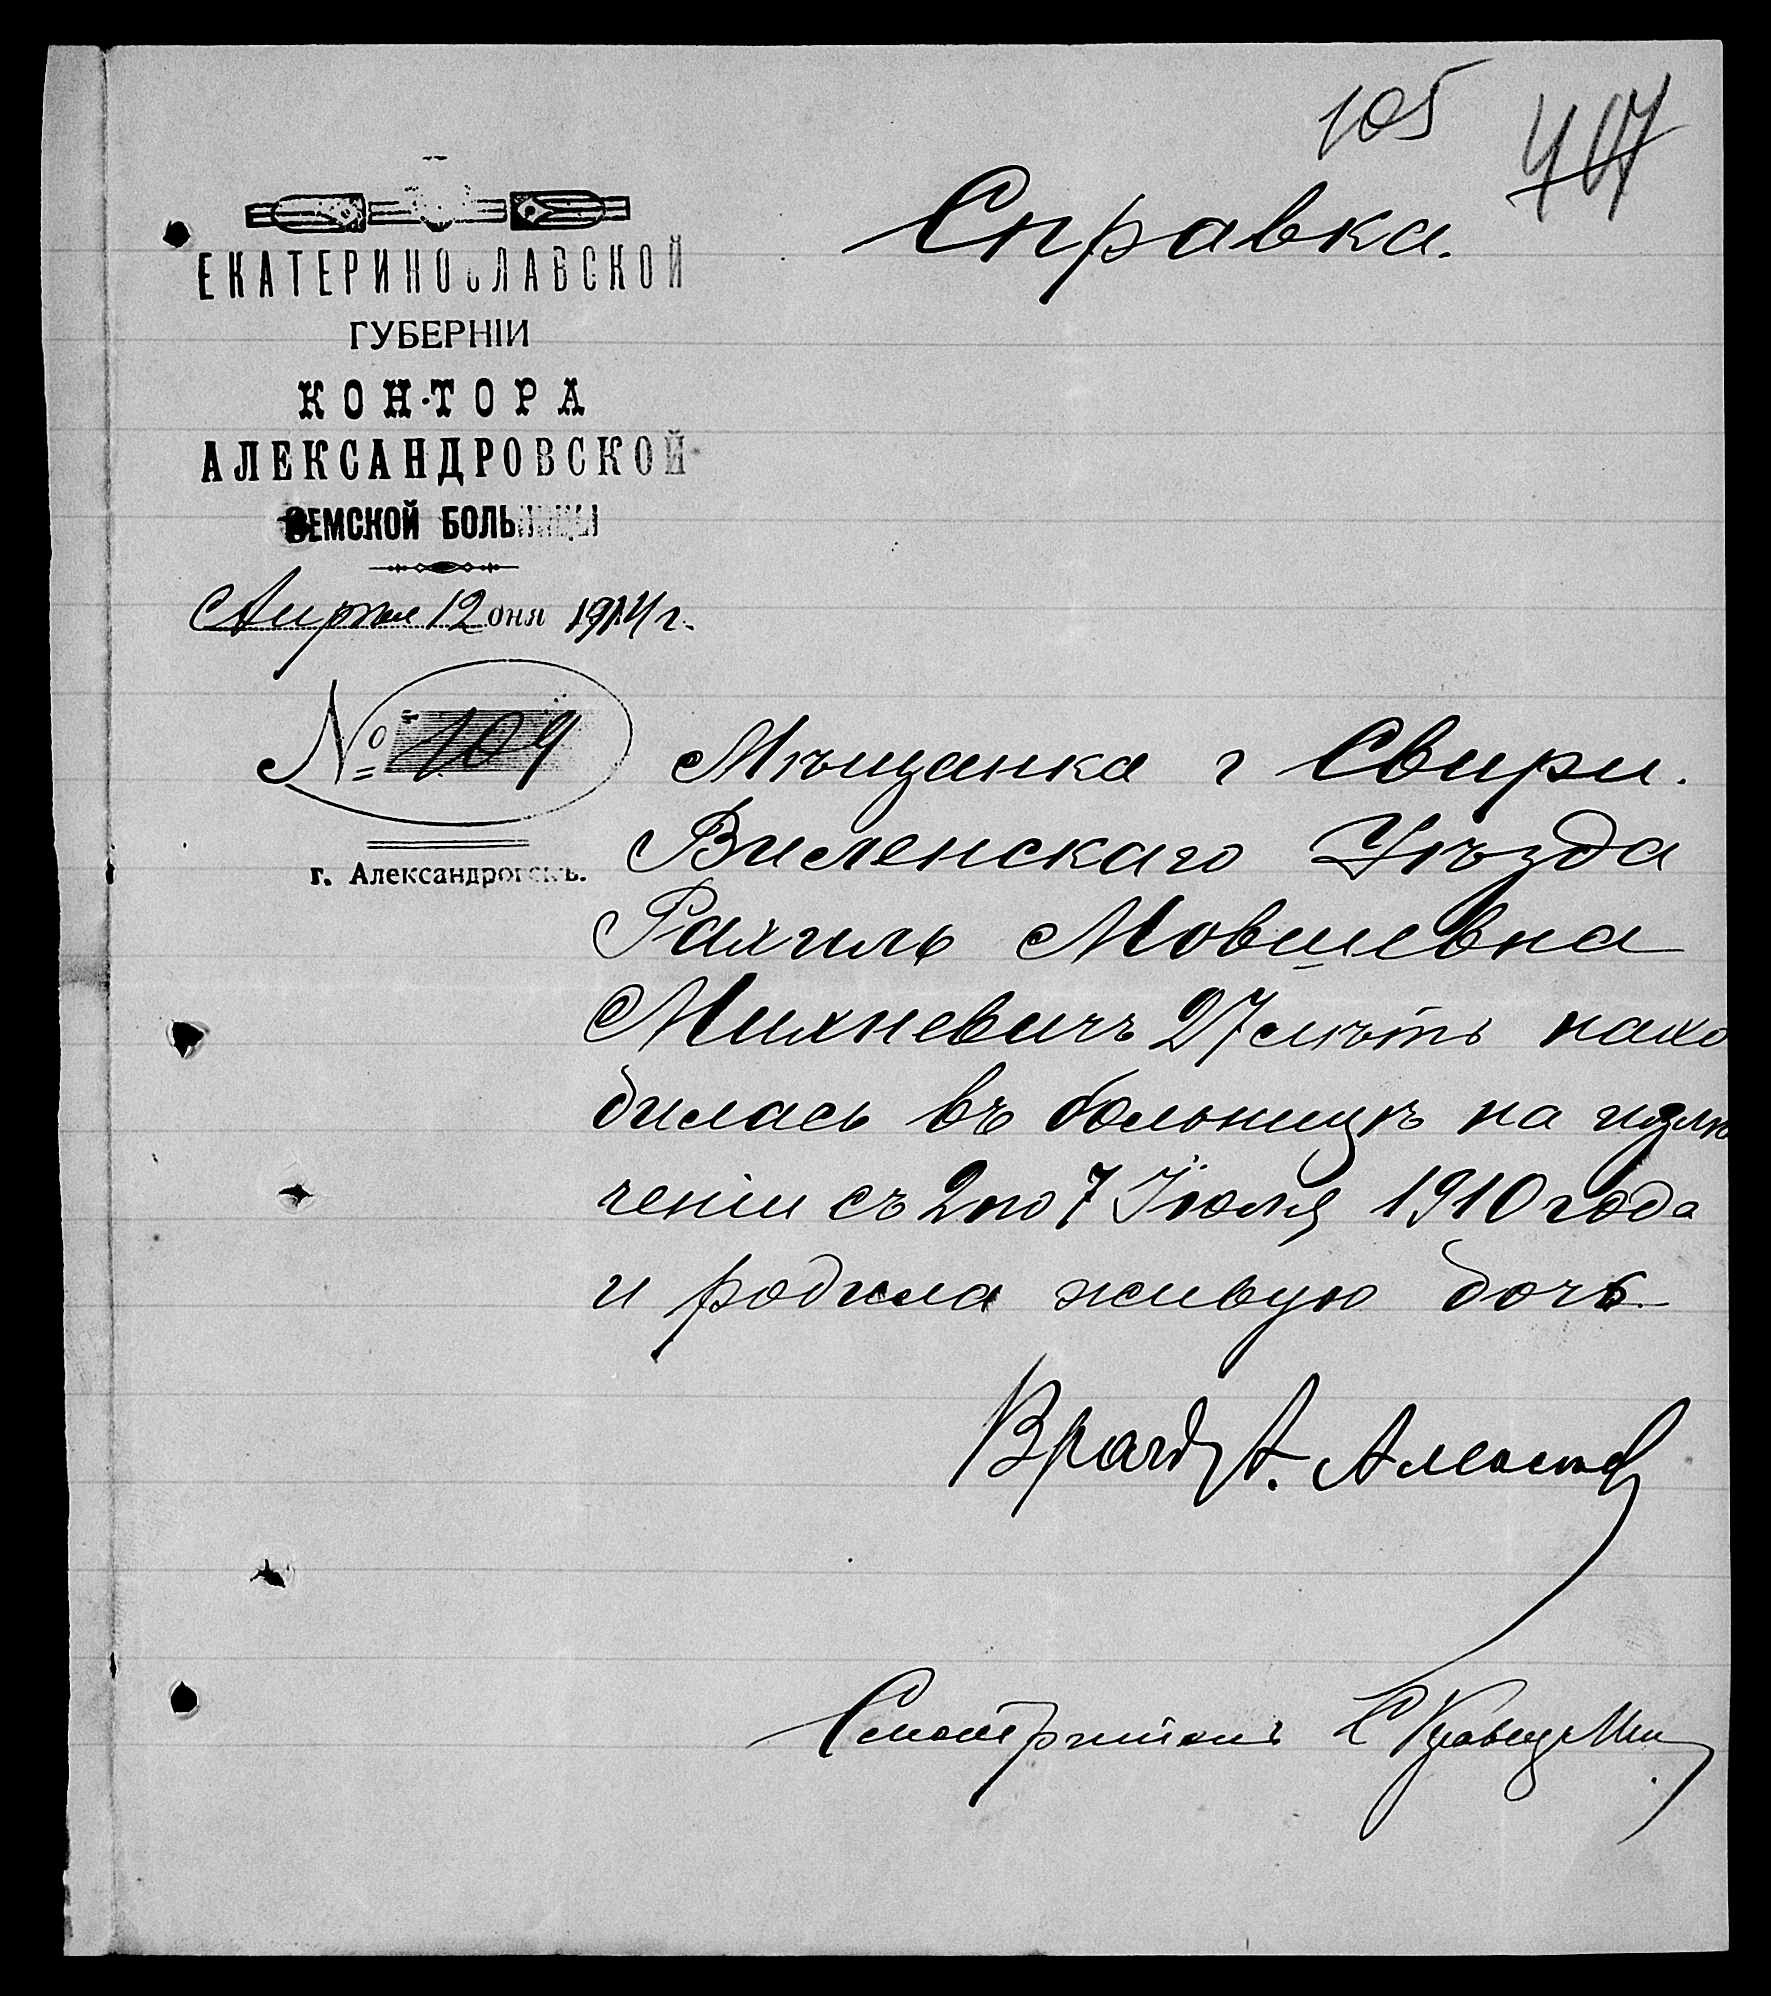 105 407
Справка.
ЕКАТЕРИНОСЛАВСКОЙ
ГУБЕРНІИ
КОНТОРА
АЛЕКСАНДРОВСКОЙ
ЗЕМСКОЙ БОЛЬНИЦЫ
Апреля 12 дня 1914 г.
№ 109
г. Александровскъ.
Мѣщанка г Свири.
Виленскаго Уѣзда
Рахиль Мовшевна
Михневичъ 27 лѣтъ нахо
дилась въ больницѣ на излѣ
ченіи съ 2 по 7 Іюля 1910 года
и родила живую дочь
Врачъ А.
Смотритель